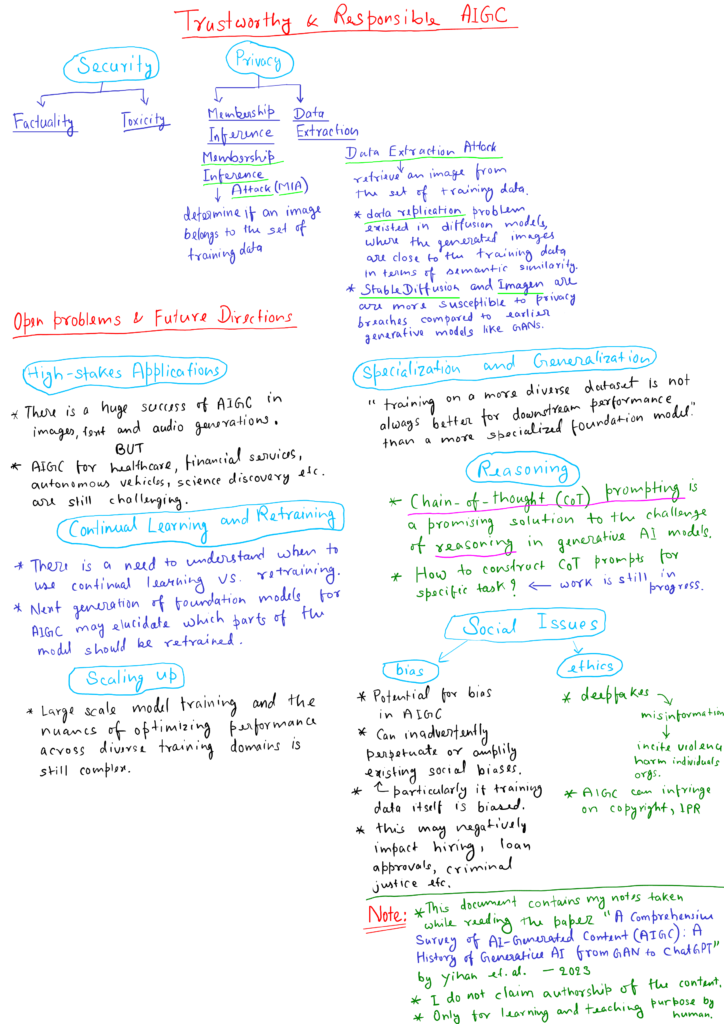 Trustworthy & Responsible AIGC
Security
Factuality
Toxicity
Privacy
Membership
Inference
Data
Extraction
Membership
Inference
Attack (MIA)
determine if an image
belongs to the set of
training data
Data Extraction Attack
retrieve an image from
the set of training data.
* data replication problem
existed in diffusion models,
where the generated images
are close to the training data
in terms of semantic similarity.
* Stable Diffusion and Imagen are
are more susceptible to privacy
breaches compared to earlier
generative models like GANs.
Open problems & Future Directions
High-stakes Applications
* There is a huge success of AIGC in
images, text and audio generations.
BUT
* AIGC for healthcare, financial services,
autonomous vehicles, science discovery etc.
are still challenging.
Continual Learning and Retraining
* There is a need to understand when to
use continual learning vs. retraining.
* Next generation of foundation models for
AIGC may elucidate which parts of the
model should be retrained.
Scaling up
* Large scale model training and the
nuances of optimizing performance
across diverse training domains is
still complex.
Specialization and Generalization
"training on a more diverse dataset is not
always better for downstream performance
than a more specialized foundation model."
Reasoning
* Chain-of-thought (CoT) prompting is
a promising solution to the challenge
of reasoning in generative AI models.
* How to construct CoT prompts for
specific task? ← work is still in
progress.
Social Issues
bias
* Potential for bias
in AIGC
* Can inadvertently
perpetuate or amplify
existing social biases.
* particularly if training
data itself is biased.
* this may negatively
impact hiring, loan
approvals, criminal
justice etc.
ethics
* deepfakes
misinformation
incite violence
harm individuals
orgs.
* AIGC can infringe
on copyright, IPR
Note: * This document contains my notes taken
while reading the paper "A Comprehensive
Survey of AI-Generated Content (AIGC): A
History of Generative AI from GAN to ChatGPT"
by Yihan et. al. - 2023
* I do not claim authorship of the content.
* Only for learning and teaching purpose by
human.